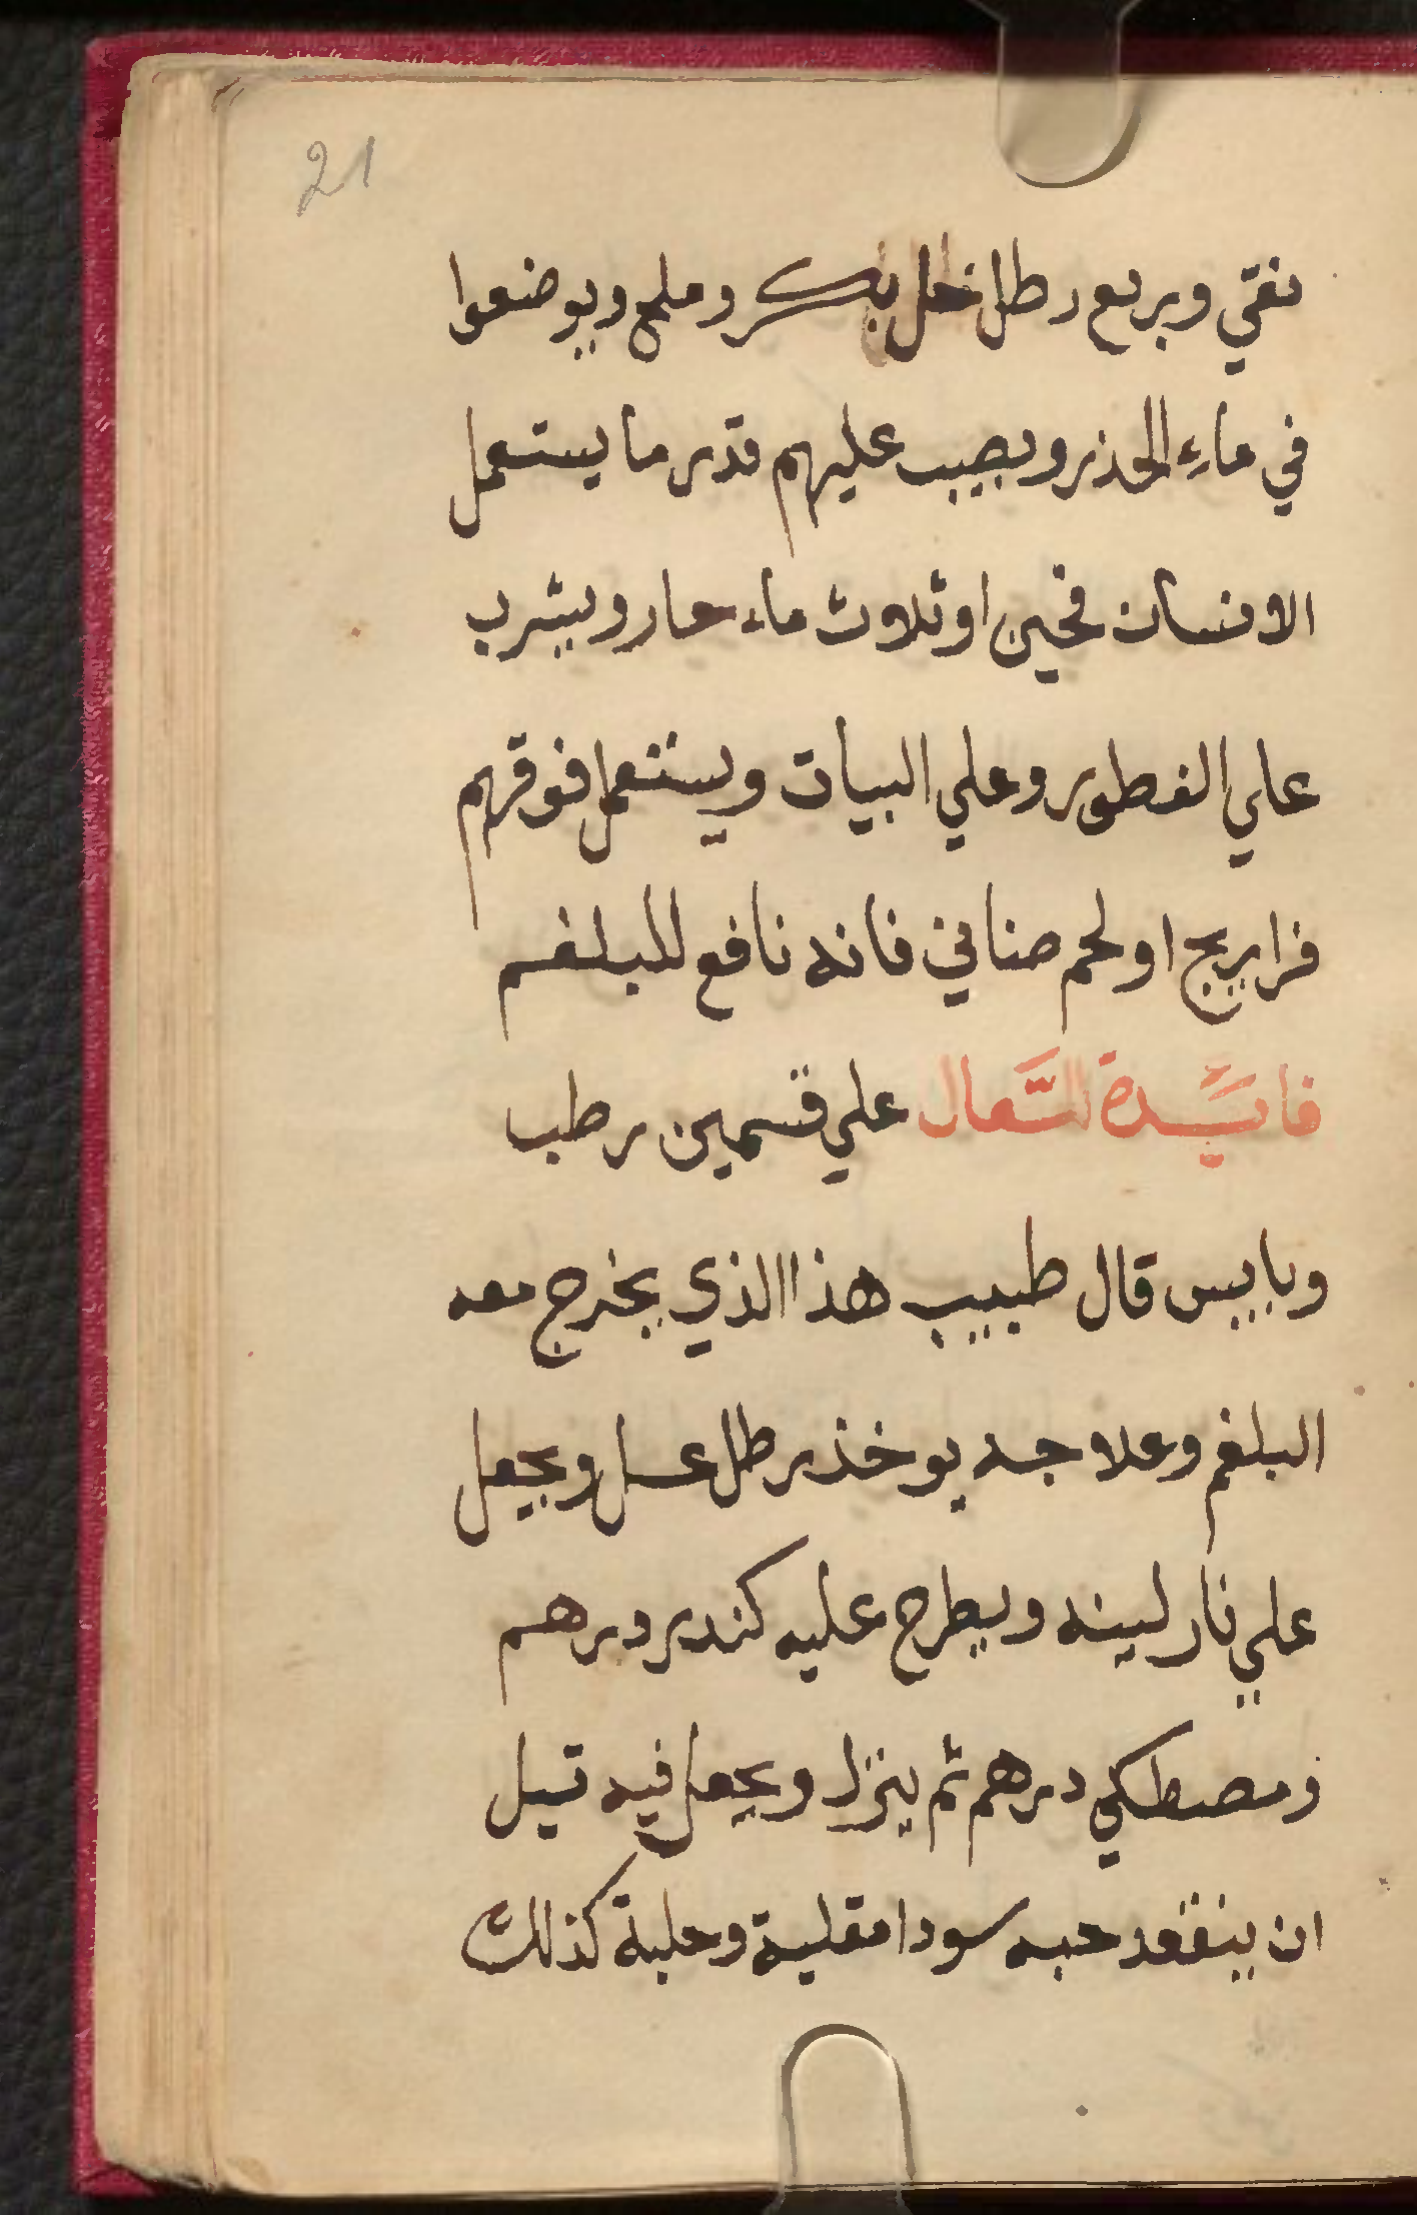 21
نقي وبربع رطل خل بكر وملح ويوضعوا
في ماء الجذر ويصب عليهم قدر ما يستعمل
الانسان فخين او ثلاث ماء حار ويشرب
علي الفطور وعلي البيات ويستعمل فوقهم
فراريج او لحم ضاني فانه نافع للبلغم
فايدة للسعال علي قسمين رطب
ويابس قال طبيب هذا الذي يخرج معه
البلغم وعلاجه يوخذ رطل عسل ويجعل
علي نار لينه ويطرح عليه كندر درهم
ومصطكي درهم ثم ينزل ويجعل فيه قبل
ان ينعقد حبه سودا مقلية وحلبة كذلك